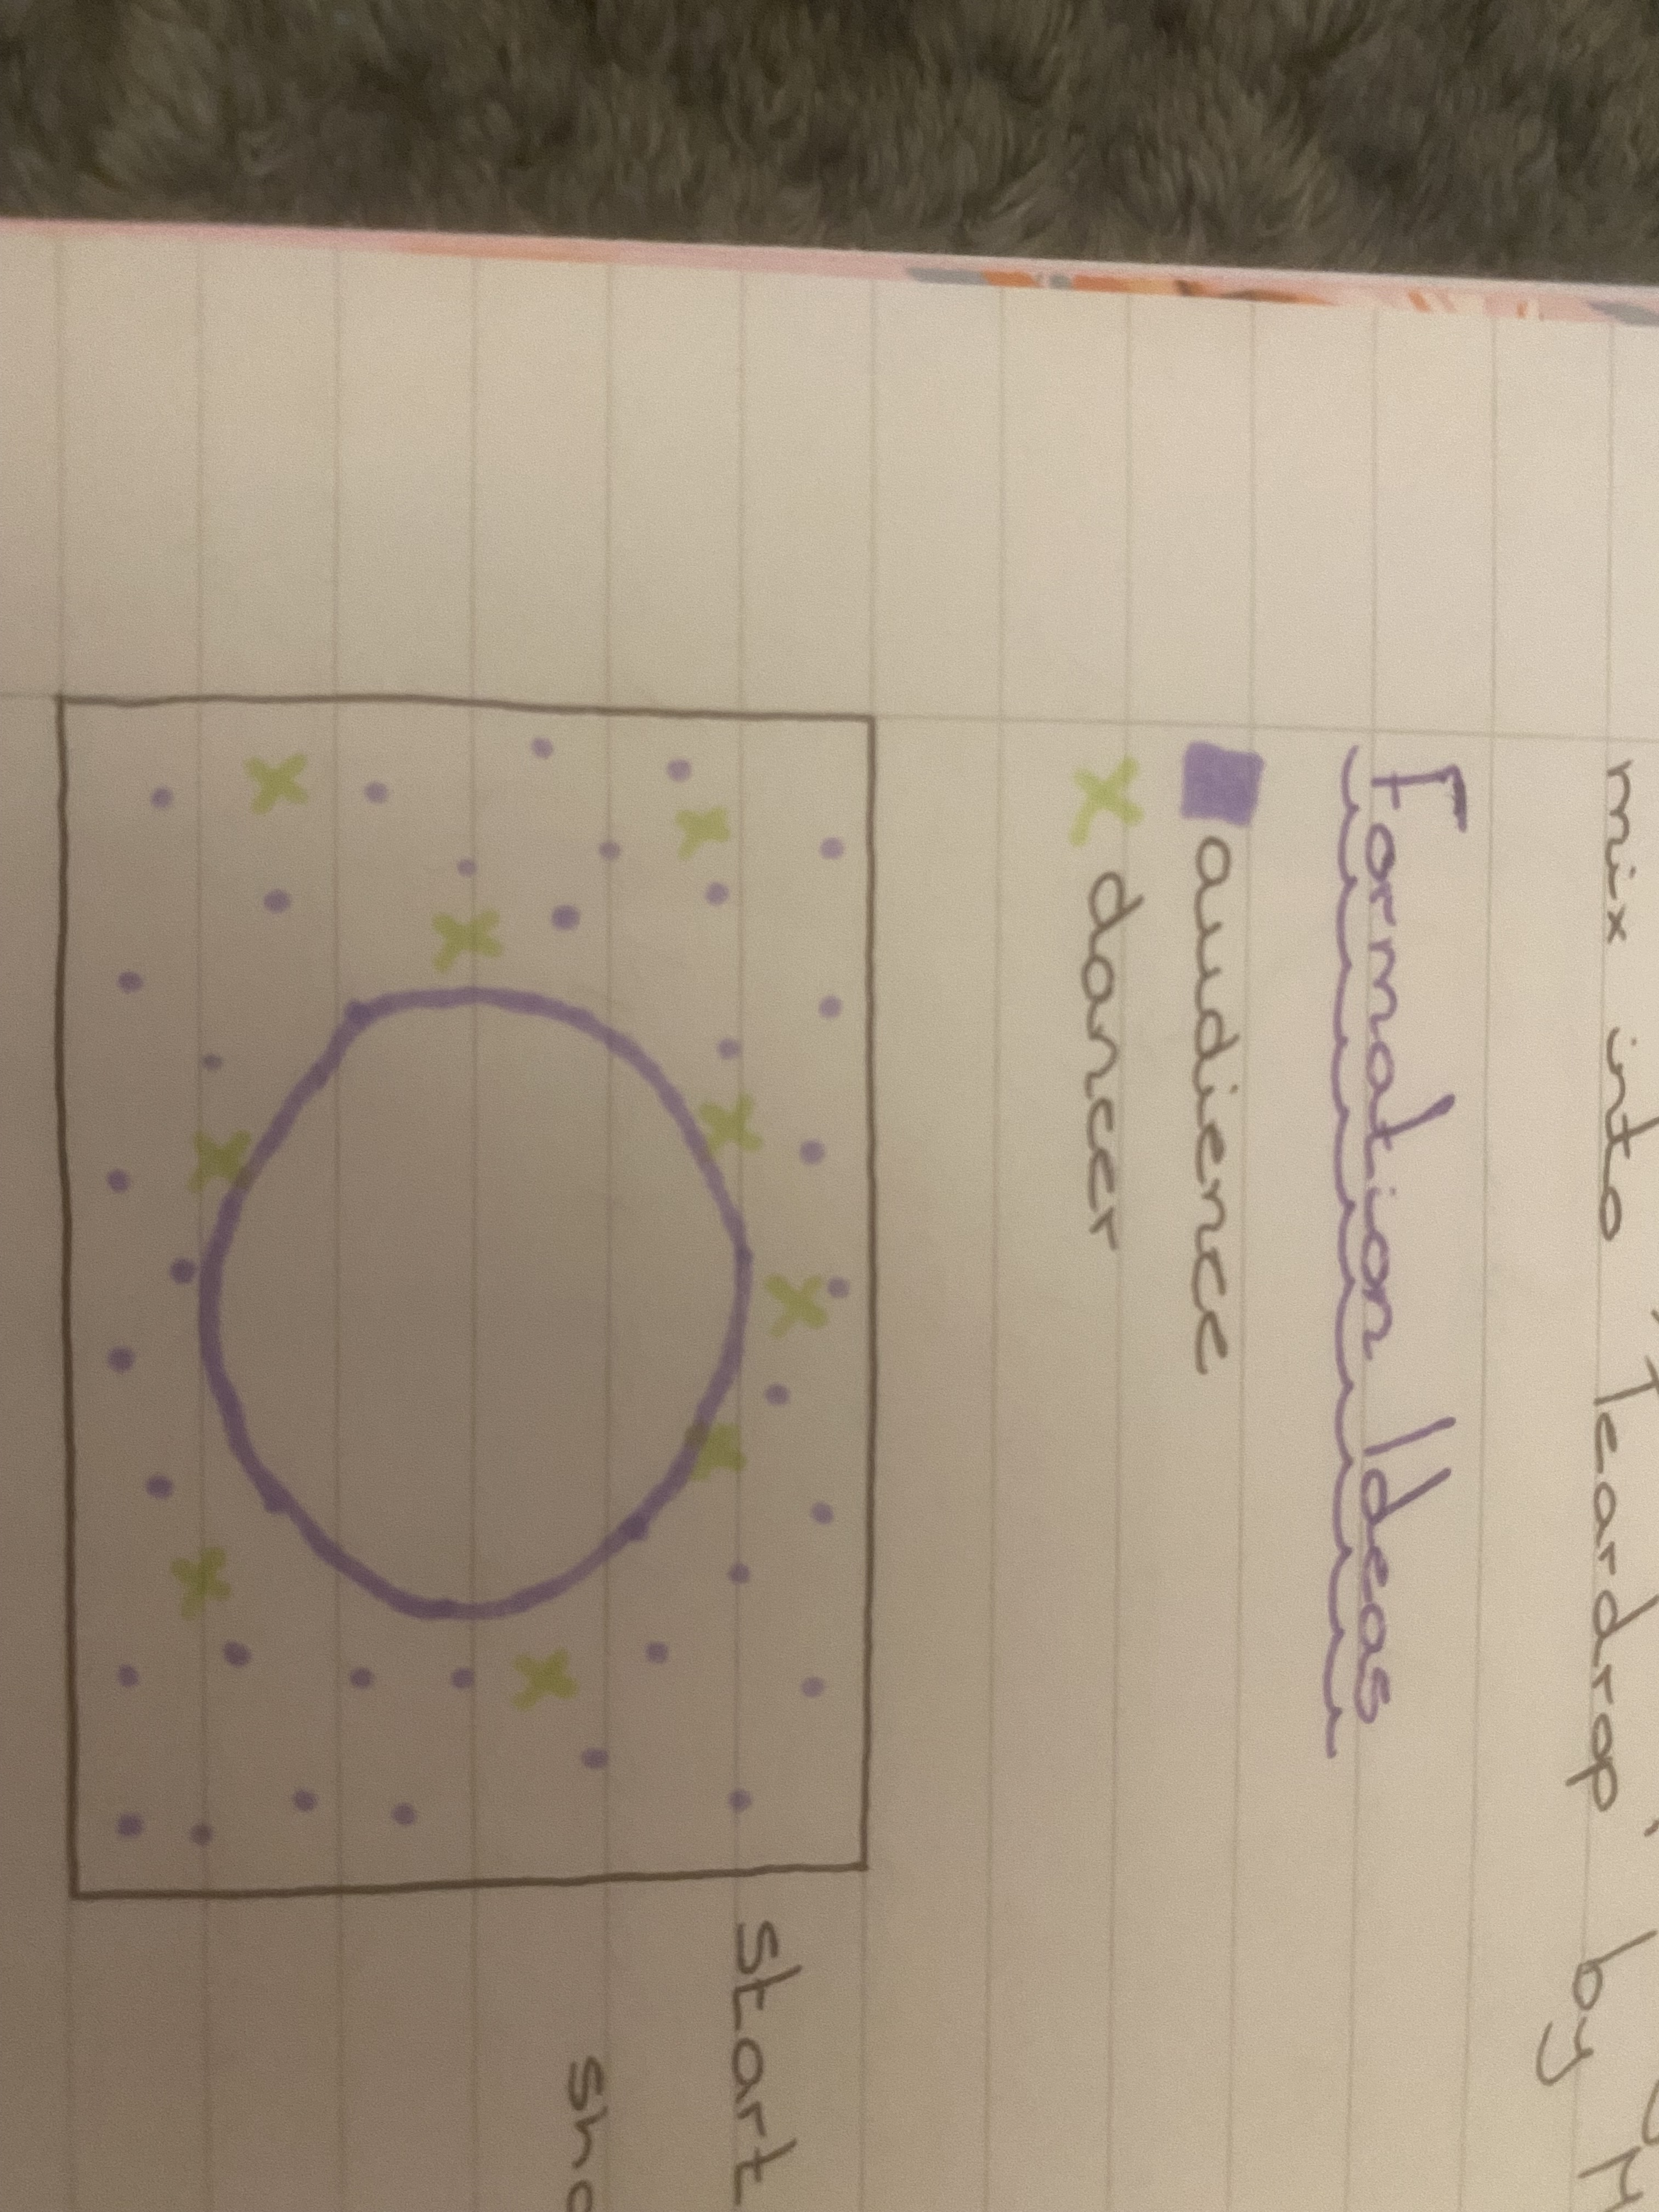 mix into 'Teardrop' by
Formation Ideas
audience
dancer
start
sho